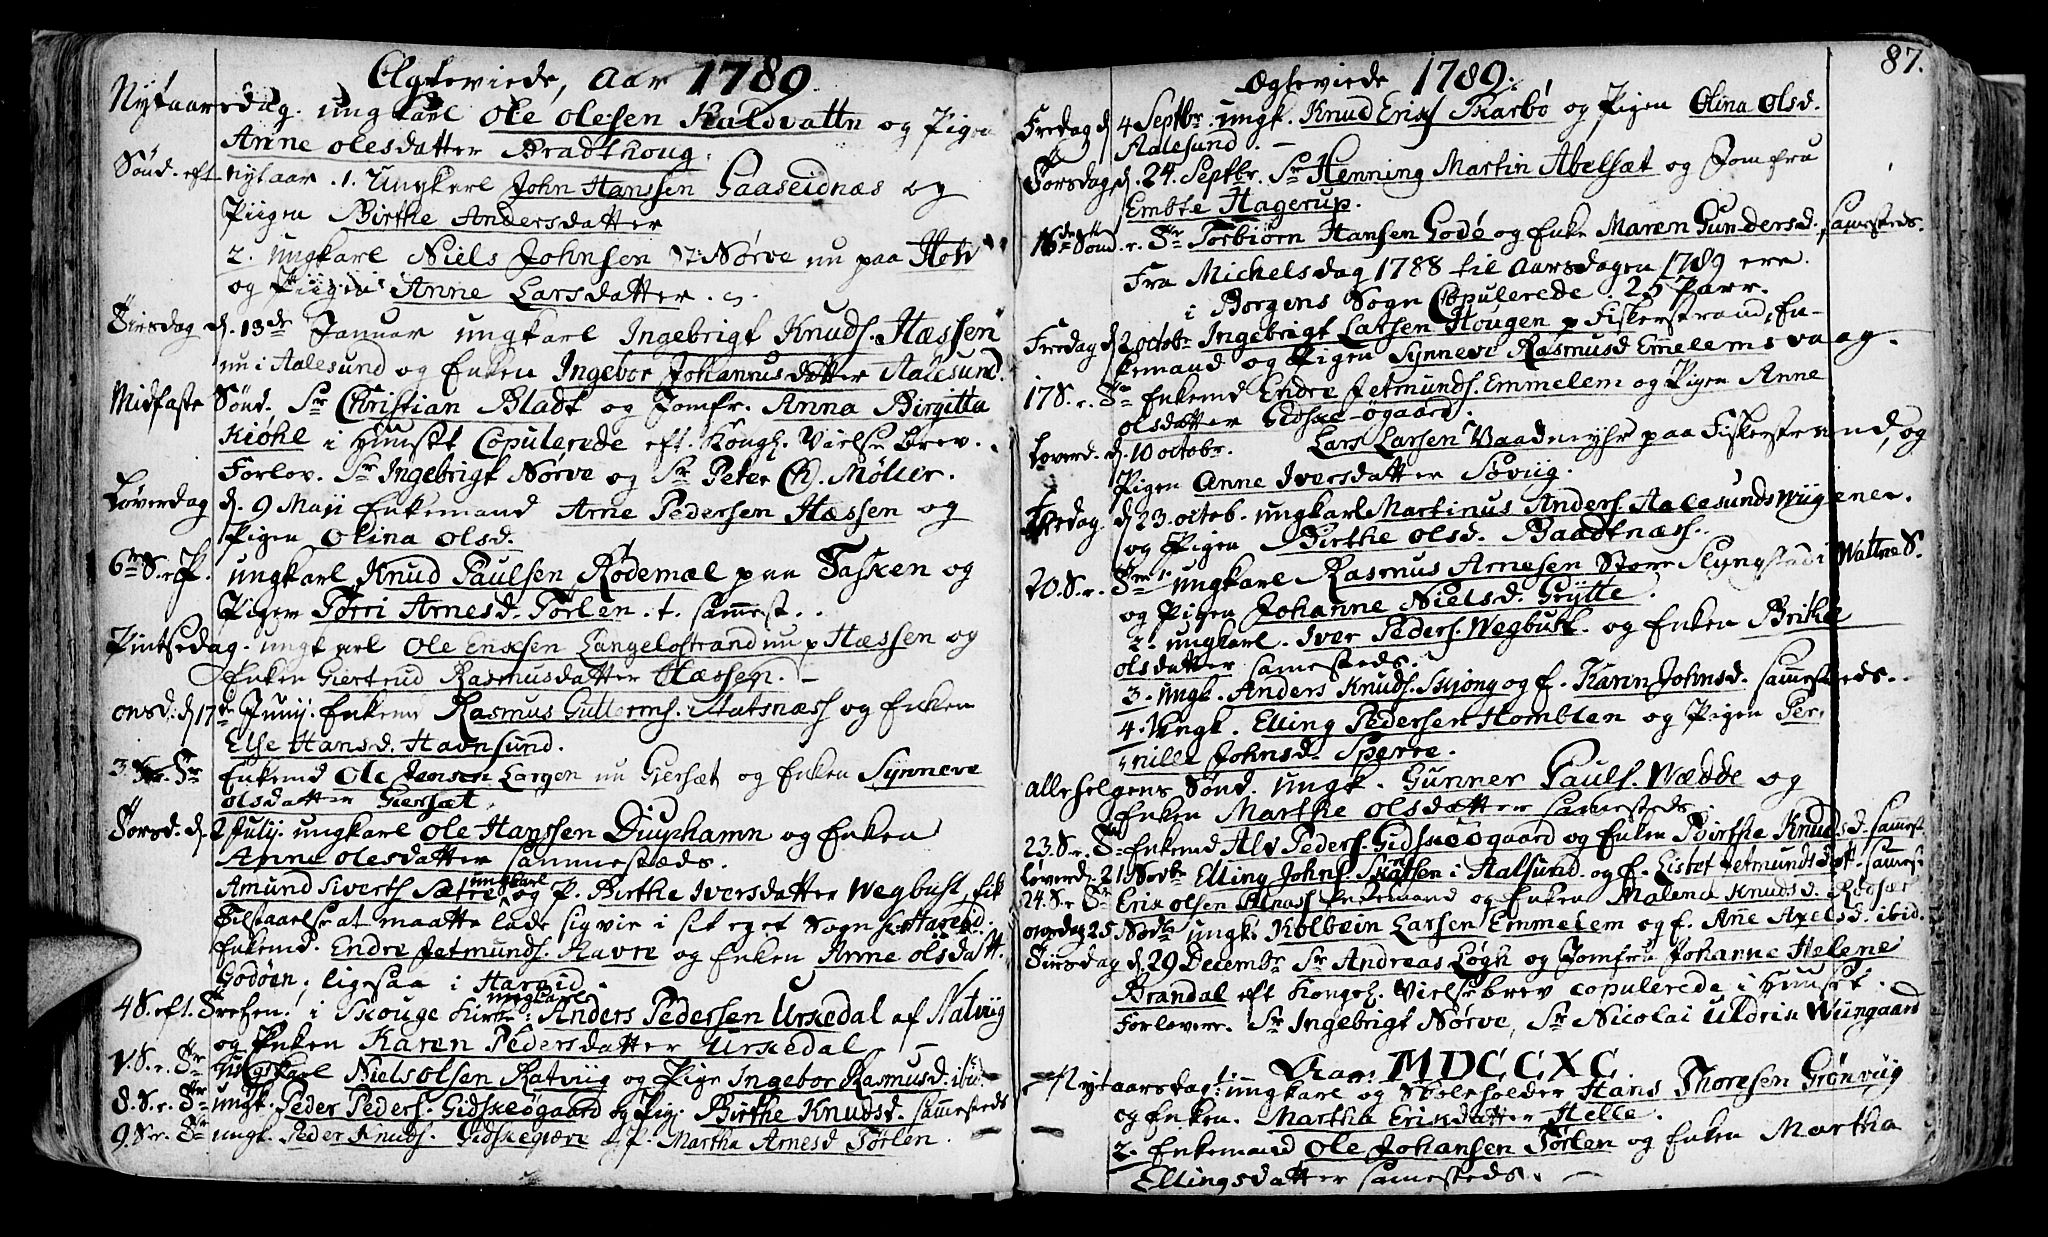 Ægteviede, Aar 1789.
Nytaarsdag. ungkarl Ole Olesen Kalsvattn og Pigen
Anne Olesdatter Bradthoug.
Sönd. eft nytaar .1. Ungkarl John Hanssen Gaaseidnæs og
Piigen Birthe Andersdatter
2. ungkarl Niels Johnsen Nörve nu paa How
og Piigen Anne Larsdatter.
Tirsdag d. 13de Januar ungkarl Ingebrigt Knuds. Hæssen
nu i Aalesund og Enken Ingebor Johannusdatter Aalesund.
Midfaste Sönd. Sr Christian Bladt og Jomfr. Anna Birgitta
Kiöhl i Huuset Copulerede eft. Kongl. Vielse brev.
Forlov. Sr Ingebrigt Nörve og Sr Peter Ch. Møller.
Løverdag d. 9 Maji Enkemand Arne Pedersen Hæssen og
Pigen Olina Olsd.
6te S. e. P. ungkarl Knud Paulsen Rødemæl paa Tasken og
Pigen Torri Arnesd. Torlen. t. sammest.
Pintsedag. ungkarl Ole Enksen Langelostrand nu p Hæssen og
Enken Giertrud Rasmusdatter Hæssen. -
Onsd. d 17de Junij. Enkemd Rasmus Guttorms. Aatsnæss og Enken
Else Hansd. Havnsund.
3. S. Tr Enkemd Ole Jensen Largen nu Giersæt og Enken Synneve
Olsdatter Giersæt.
Torsd. d. 2 Julij. ungkarl Ole Hanssen Diuphamn og Enken
Anne Olesdatter sammestæds.
Amund Siverts Sætre ungkarl og P. Birthe Iversdatter Wegbust, fik
Tilstaaelse at maatte lade sig vie i sit eget Sogn Harejd.
Enkemd. Endre Jetmunds. Ravre og Enken Anne Olsdatt.
Godöen, ligesaa i Hareid.
4 S. eft. Trefon. i Skouge Kirke: ungkarl Anders Pedersen Urkedal af Natvug
og Enken Karen Pedersdatter Urkedal -
V. S. e. Tr ungkarl Niels Olsen Ratvug og Pige Ingebor Rasmusd. ibid.
8. S. e. Tr ungk. Peder Peders. Gidskeögaard og Pig. Birthe Knudsd. sammesteds
9. S. e. Tr ungk. Peder Knuds. Gidskegiære og P. Martha Arnesd Torlen.
87.
Ægteviede 1789.
Fredag d 4 Septbr. ungk. Knud Eriks Skarbö og Pigen Olina Olsd.
Aalesund. -
Torsdag d. 24. Septbr. Sr Henning Martin Abelsæt og Jomfru
Embte Hagerup.
16de Sönd. e. Tr Torbiörn Hansen Godö og Enke Maren Gundersd. samesteds.
Fra Michelsdag 1788 til Aarsdagen 1789 ere
i Borgens Sogn Copulerede 25 Parr.
Fredag d 2 octobr Ingebrigt Larsen Hougen p Fiskerstrand, En-
kemand og Pigen Synneve Rasmusd Emelemsvaag.
17 S. e. Tr Enkemd Endre Jetmunds. Emmelem og Pigen Anne
Olsdatter Gidske-ögaard.
Løverd. d. 10 octobr. Lars Larsen Vaadmyhr paa Fiskerstrand, og
Pigen Anne Iversdatter Søvug.
Fredag. d 23. octob. ungkarl Martinus Anders. Aalesundswiigene.
og Pigen Birthe Olsd. Baadtnæss.
20. S. e. Tr 1. ungkarl Rasmus Arnesen Store Slyngstad i Wattne S.
og Pigen Johanne Nielsd. Grytte.
2. ungkarl. Iver Peders. Wegbust. og Enken Brithe
Olsdatter samesteds.
3. ungk. Anders Knuds. Skjong og E. Karen Johnsd. sammesteds.
4. Ungk. Elling Pedersen Homblen og Pigen Per-
nille Johnsd. Sperre.
Allehelgens Sönd. ungk. Gunner Pauls. Wædde og
Enken Marthe Olsdatter samesteds.
23. S. e. Tr Enkemd Alv Peders. Gidskeögaard og Enken Birthe Knudsd. samest
Løverd. 21 Novbr Elling Johns. Skatsen i Aalsund. og E. Eistet Jetmundsdatt. samest.
24. S. e Tr Erik Olsen Alnæss Enkemand og Enken Malena Knudsd. Rödsæt
Onsdag 25 Novbr ungk. Kolbein Larsen Emmelem og E. Ane Axelsd. ibid.
Tirsdag d. 29 Decembr Sr Andreas Løgh og Jomfru Johanne Helene
Brandal eft Kongel. Vielsebrev copulerede i Huuset.
Forlovere. Sr Ingebrigt Nörve, Sr Nicolai Uldrik Wiingaard
Aar MDCCXC.
Nytaarsdag 1. ungkarl og Skoleholder Hans Thoresen Grönvug
og Enken. Martha Eriksdatter Helle.
2. Enkemand Ole Johansen Törlen og Enken Martha
Ellingsdatter samesteds. -